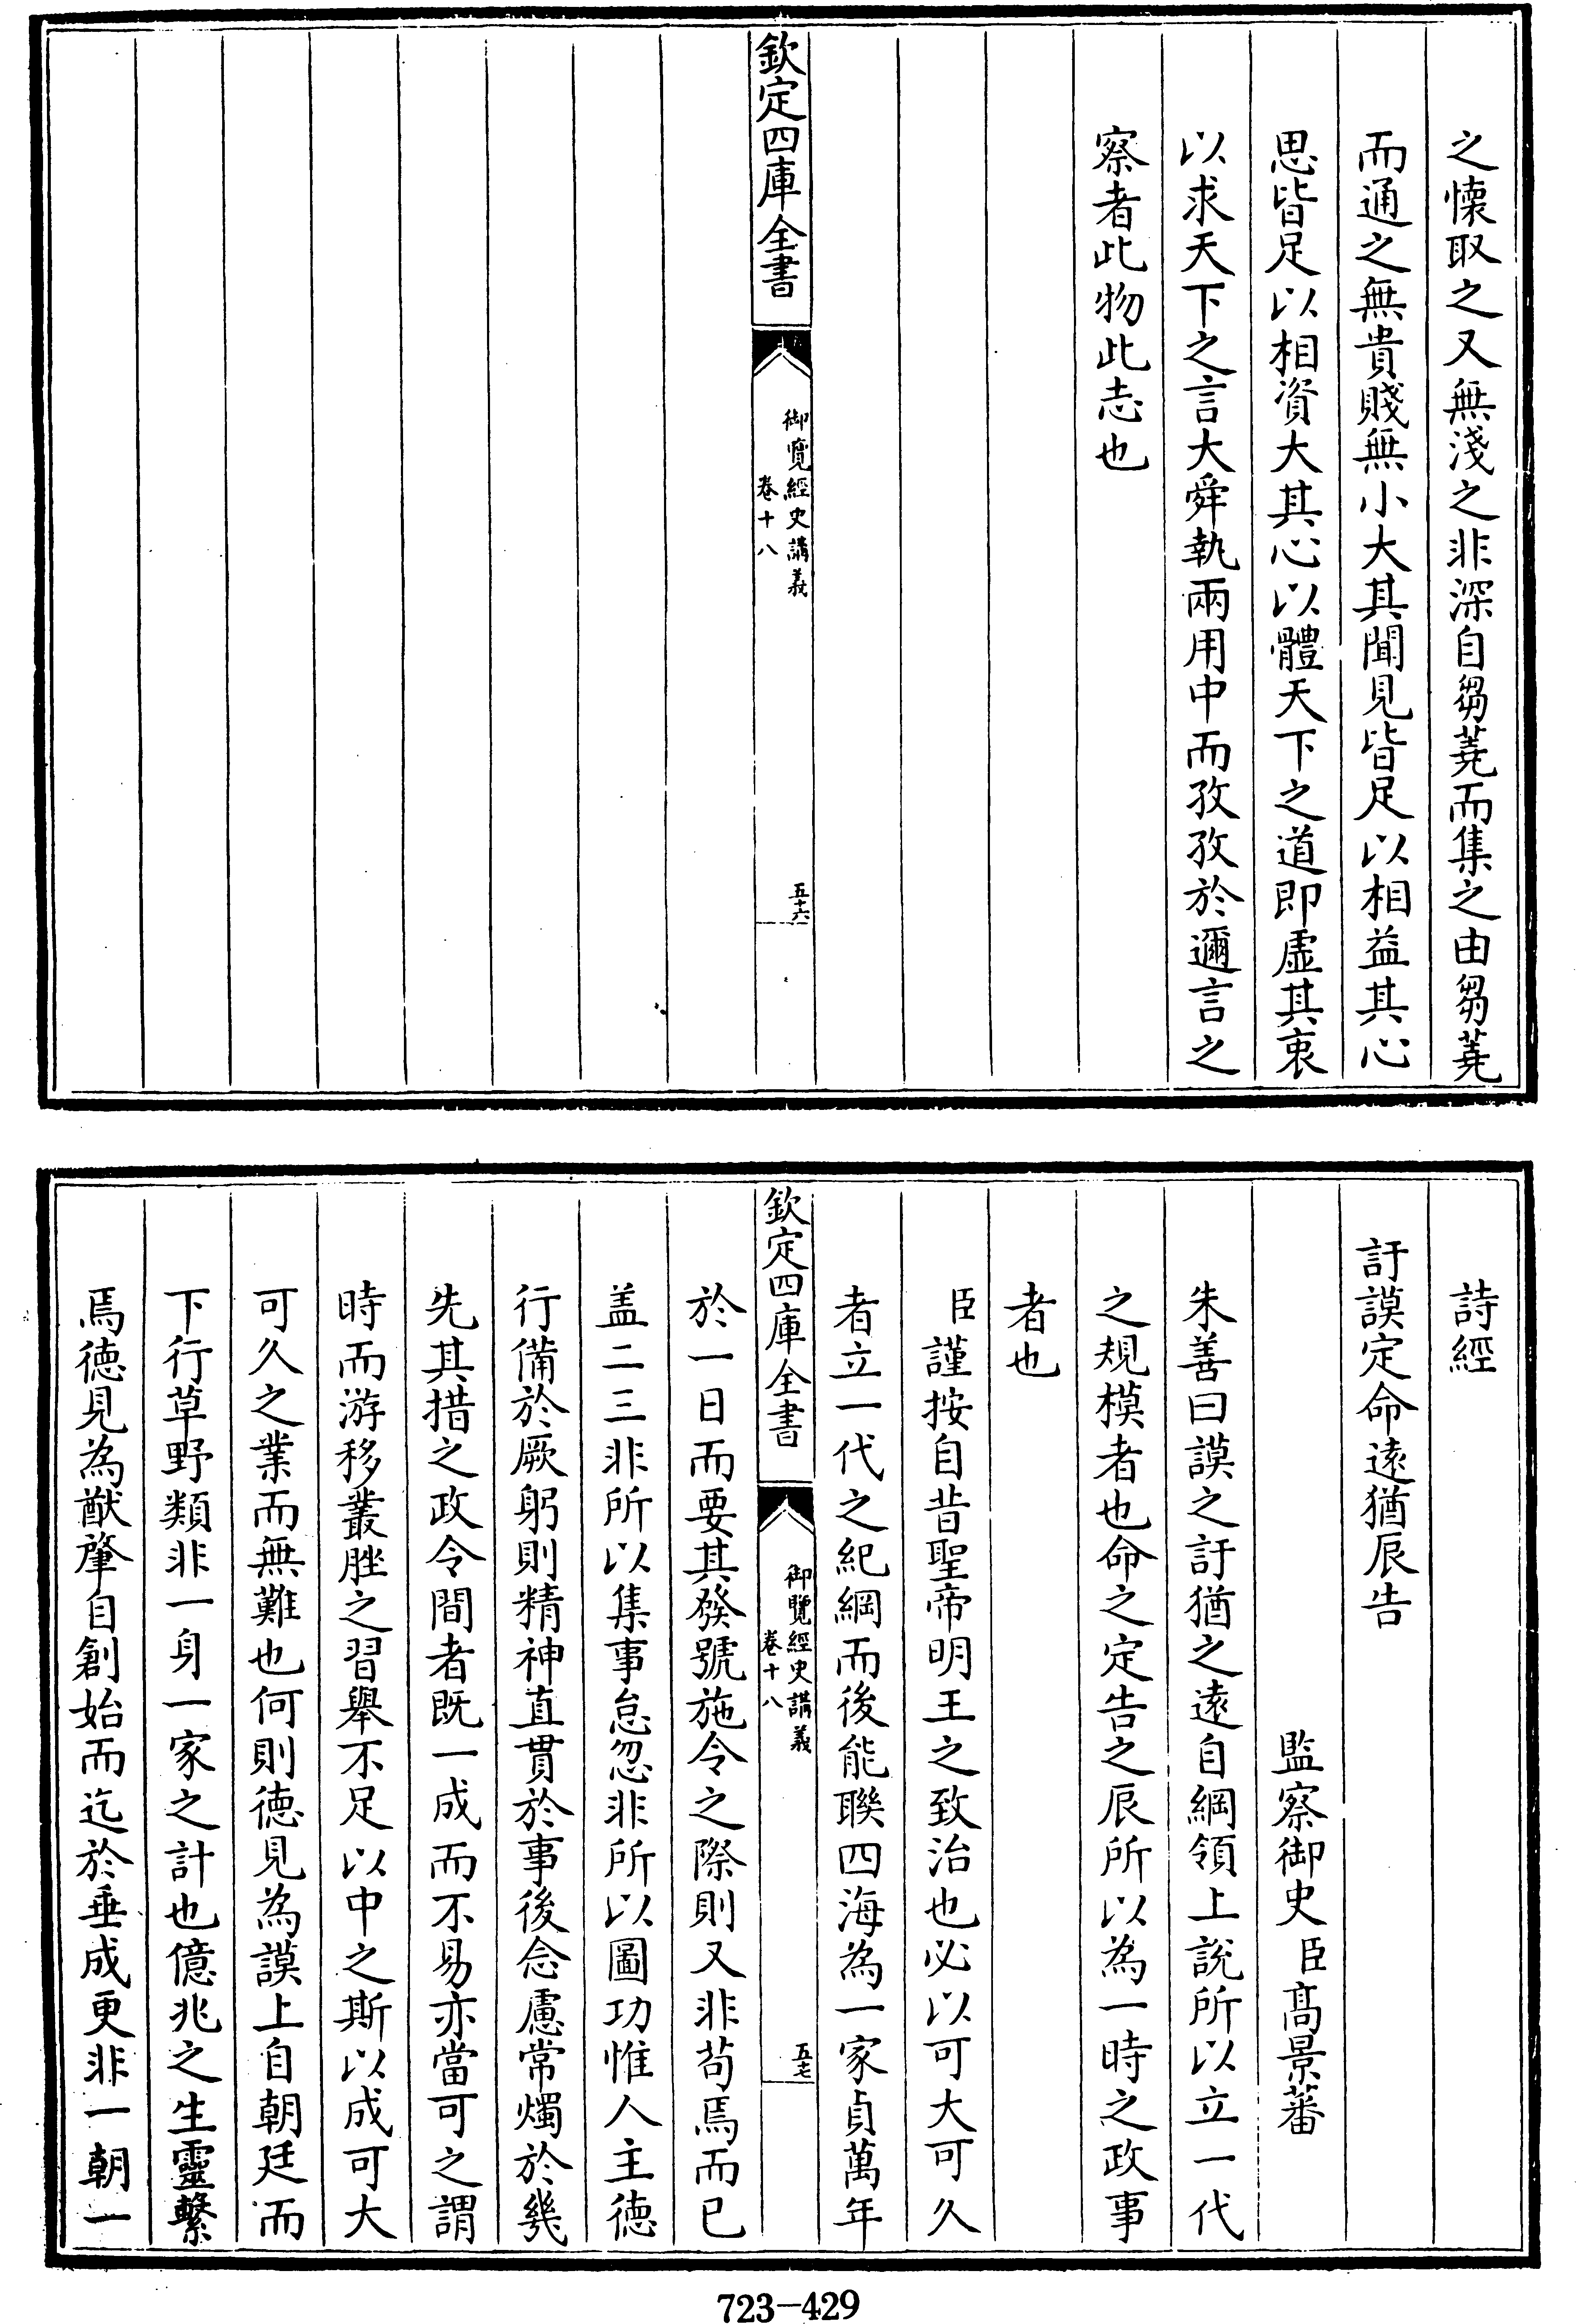 之懐取之又無淺之非深自芻蕘而集之由芻蕘
而通之無貴賤無小大其聞見皆足以相益其心
思皆足以相資大其心以體天下之道即虛其衷
以求天下之言大舜執兩用中而孜孜於邇言之
察者此物此志也
欽定四庫全書
御覽經史講義
卷十八
五十六
詩經
訏謨定命遠猶辰告
監察御史臣髙景蕃
朱善曰謨之訏猶之遠自綱領上說所以立一代
之規模者也命之定告之辰所以為一時之政事
者也
臣謹按自昔聖帝明王之致治也必以可大可久
者立一代之紀綱而後能聯四海為一家貞萬年
欽定四庫全書
御覽經史講義
卷十八
五七
於一日而要其發號施令之際則又非茍焉而已
盖二三非所以集事怠忽非所以圖功惟人主德
行備於厥躬則精神直貫於事後念慮常燭於幾
先其措之政令間者既一成而不易亦當可之謂
時而游移叢脞之習舉不足以中之斯以成可大
可久之業而無難也何則德見為謨上自朝廷而
下行草野類非一身一家之計也億兆之生靈繫
焉徳見為猷肇自創始而迄於垂成更非一朝一
723-429